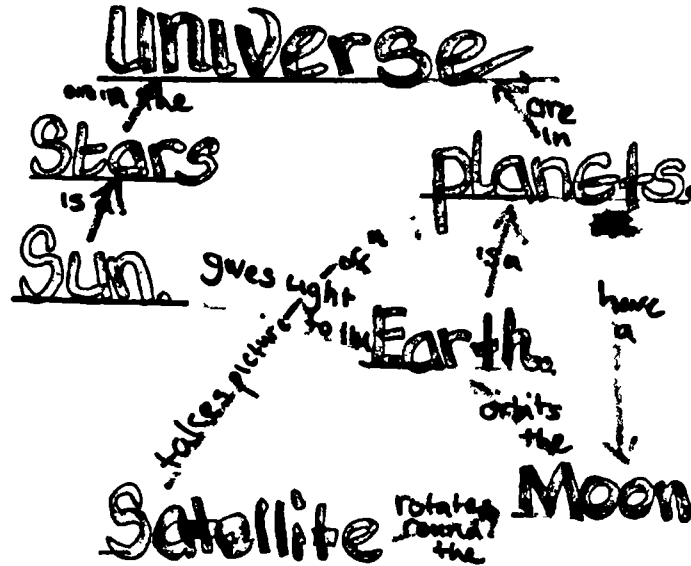 universe
are in the
are
in
Stars
planets.
is a
Sun.
gives light
of a
is a
have
a
to the
Earth
takes picture
orbits
the
Moon
Satellite
rotates
round
the